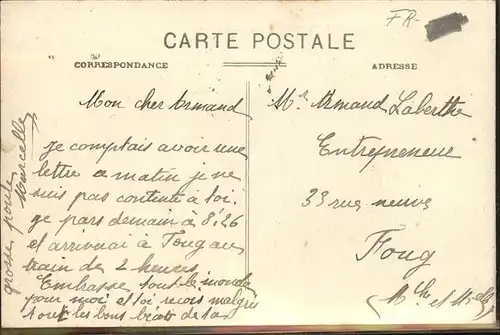 FR-
CARTE POSTALE
CORRESPONDANCE
ADRESSE
Mon cher Armand
je comptais avoir une
lettre ce matin je ne
suis pas contente à toi.
je pars demain à 8h26
et arriverai à Foug au
train de 2 heures
Embrasse tout le monde
pour moi et toi reçois malgré
tout les bons de ta
grosse poule
Marcelle
Mr Armand Laberthe
Entrepreneur
33 rue neuve
Foug
(Mthe et Mselle)